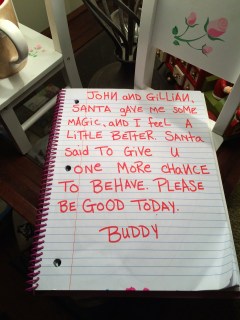 JOHN and GILLIAN,
SANTA gave me some
MAGIC, and I feel A
LITTLE BETTER. Santa
said To GIVE U
ONE MORE CHANCE
TO BEHAVE. PLEASE
BE GOOD TODAY.
BUDDY